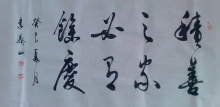 積善
之家
必有
餘慶
癸巳年夏月